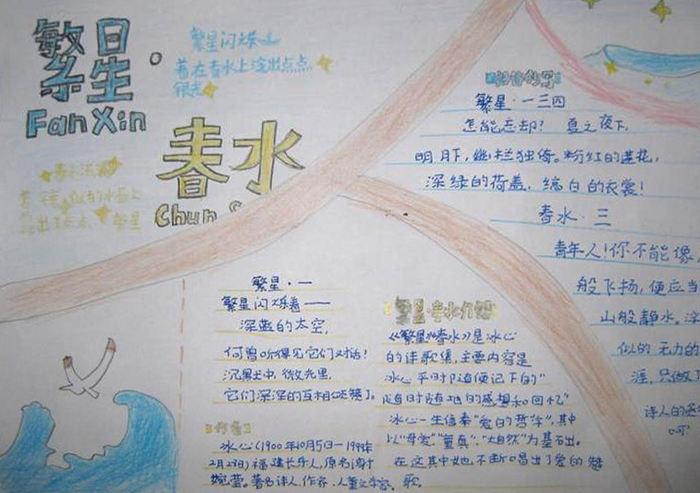 繁星·
Fan Xin
繁星闪烁
着在春水上淀出点点
银光
春水
Chun
春水
繁星
经诗的写
繁星·一三四
怎能忘却？夏之夜下,
明月下,幽栏独倚。粉红的莲花,
深绿的荷盖,缟白的衣裳！
春水·三
青年人！你不能像
般飞扬,便应当
山般静水。
似的无力的
涯,只做了
诗人的
繁星·一
繁星闪烁着——
深蓝的太空,
何曾听得见它们对话！
沉默中,微光里,
它们深深的互相颂赞了。
作者
冰心(1900年10月5日—1999年
2月28日)福建长乐人,原名谢
婉莹。著名诗人,作家,儿童文学家。
繁星·春水介绍
《繁星》《春水》是冰心
的诗歌集,主要内容是
冰心平时随便记下的“
随时随地的感想和回忆”
冰心一生信奉“爱的哲学”,其中
以“母爱”“童真”,“大自然”为基石出。
在这其中她不断唱出了爱的赞
歌。